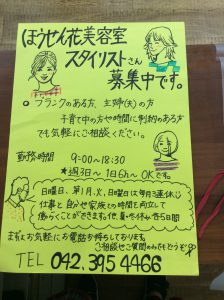 ほうせん花美容室
スタイリストさん
募集中です。
● ブランクのある方、主婦(夫)の方
子育て中の方や時間に制約のある方
でも気軽にご相談ください。
勤務時間 9:00~18:30
★週3日~ 1日6h~ OKです。
日曜日、第1月、火、日曜日は毎月3連休♪
仕事と自分や家族との時間を両立して
働らくことができます。他、夏・冬休み 各5日間
まずはお気軽にお電話お待ちしております。
ご相談やご質問のみでもどうぞ
TEL 042.395.4466